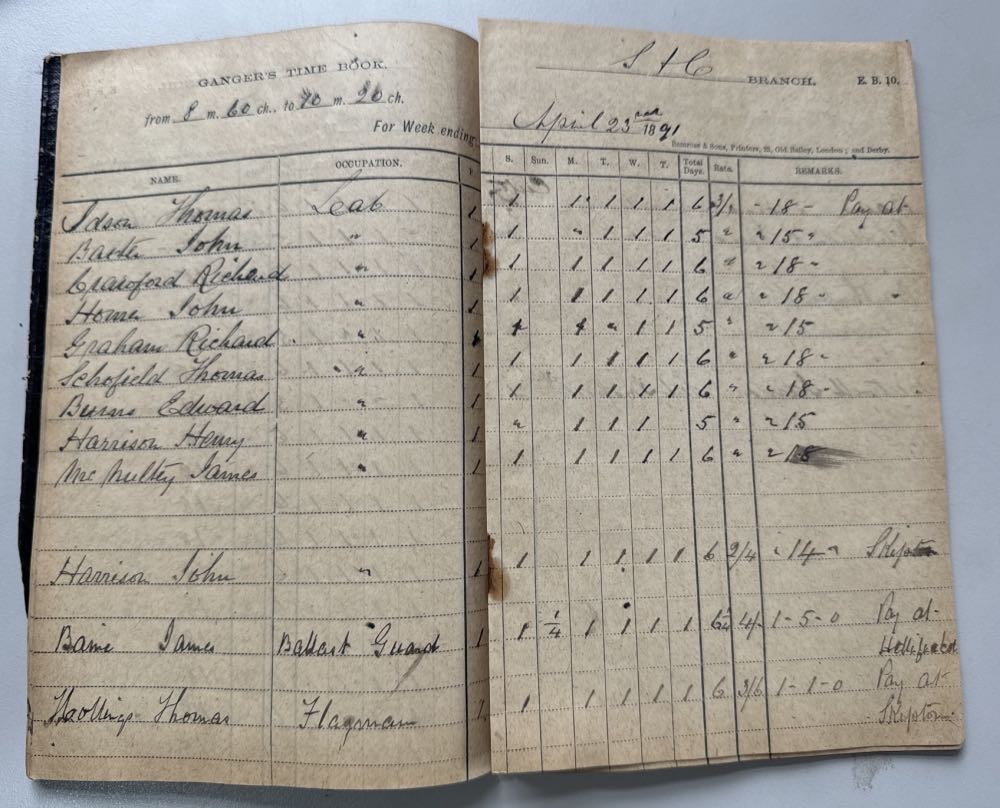 GANGER'S TIME BOOK.
from 8 m. 60 ch., to 70 m. 20 ch.
For Week ending
NAME. OCCUPATION. F
Thomas Lab 1
Baxter John " 1
Crawford Richard " 1
Horner John " 1
Graham Richard " 1
Schofield Thomas " 1
Burns Edward " 1
Harrison Henry " 1
McNultey James " 1
Harrison John " 1
Bains James Ballast Guard 1
Thomas Flagman 1
S & C BRANCH. E. B. 10.
April 23rd 1891
Bemrose & Sons, Printers, 23, Old Bailey, London; and Derby.
S. Sun. M. T. W. T. Total Days. Rate. REMARKS.
1 1 1 1 1 6 3/- - 18 - Pay at
1 " 1 1 1 5 " " 15 "
1 1 1 1 1 6 " " 18 "
1 1 1 1 1 6 " " 18 " "
1 1 " 1 1 5 " " 15
1 1 1 1 1 6 " " 18 "
1 1 1 1 1 6 " " 18 "
" 1 1 1 5 " " 15
1 1 1 1 1 6 " " 18
1 1 1 1 1 6 2/4 " 14 " Skipton
1 1/4 1 1 1 1 6 1/4 4/- 1 - 5 - 0 Pay at
Hellifield
1 1 1 1 1 6 3/6 1 - 1 - 0 Pay at
Skipton